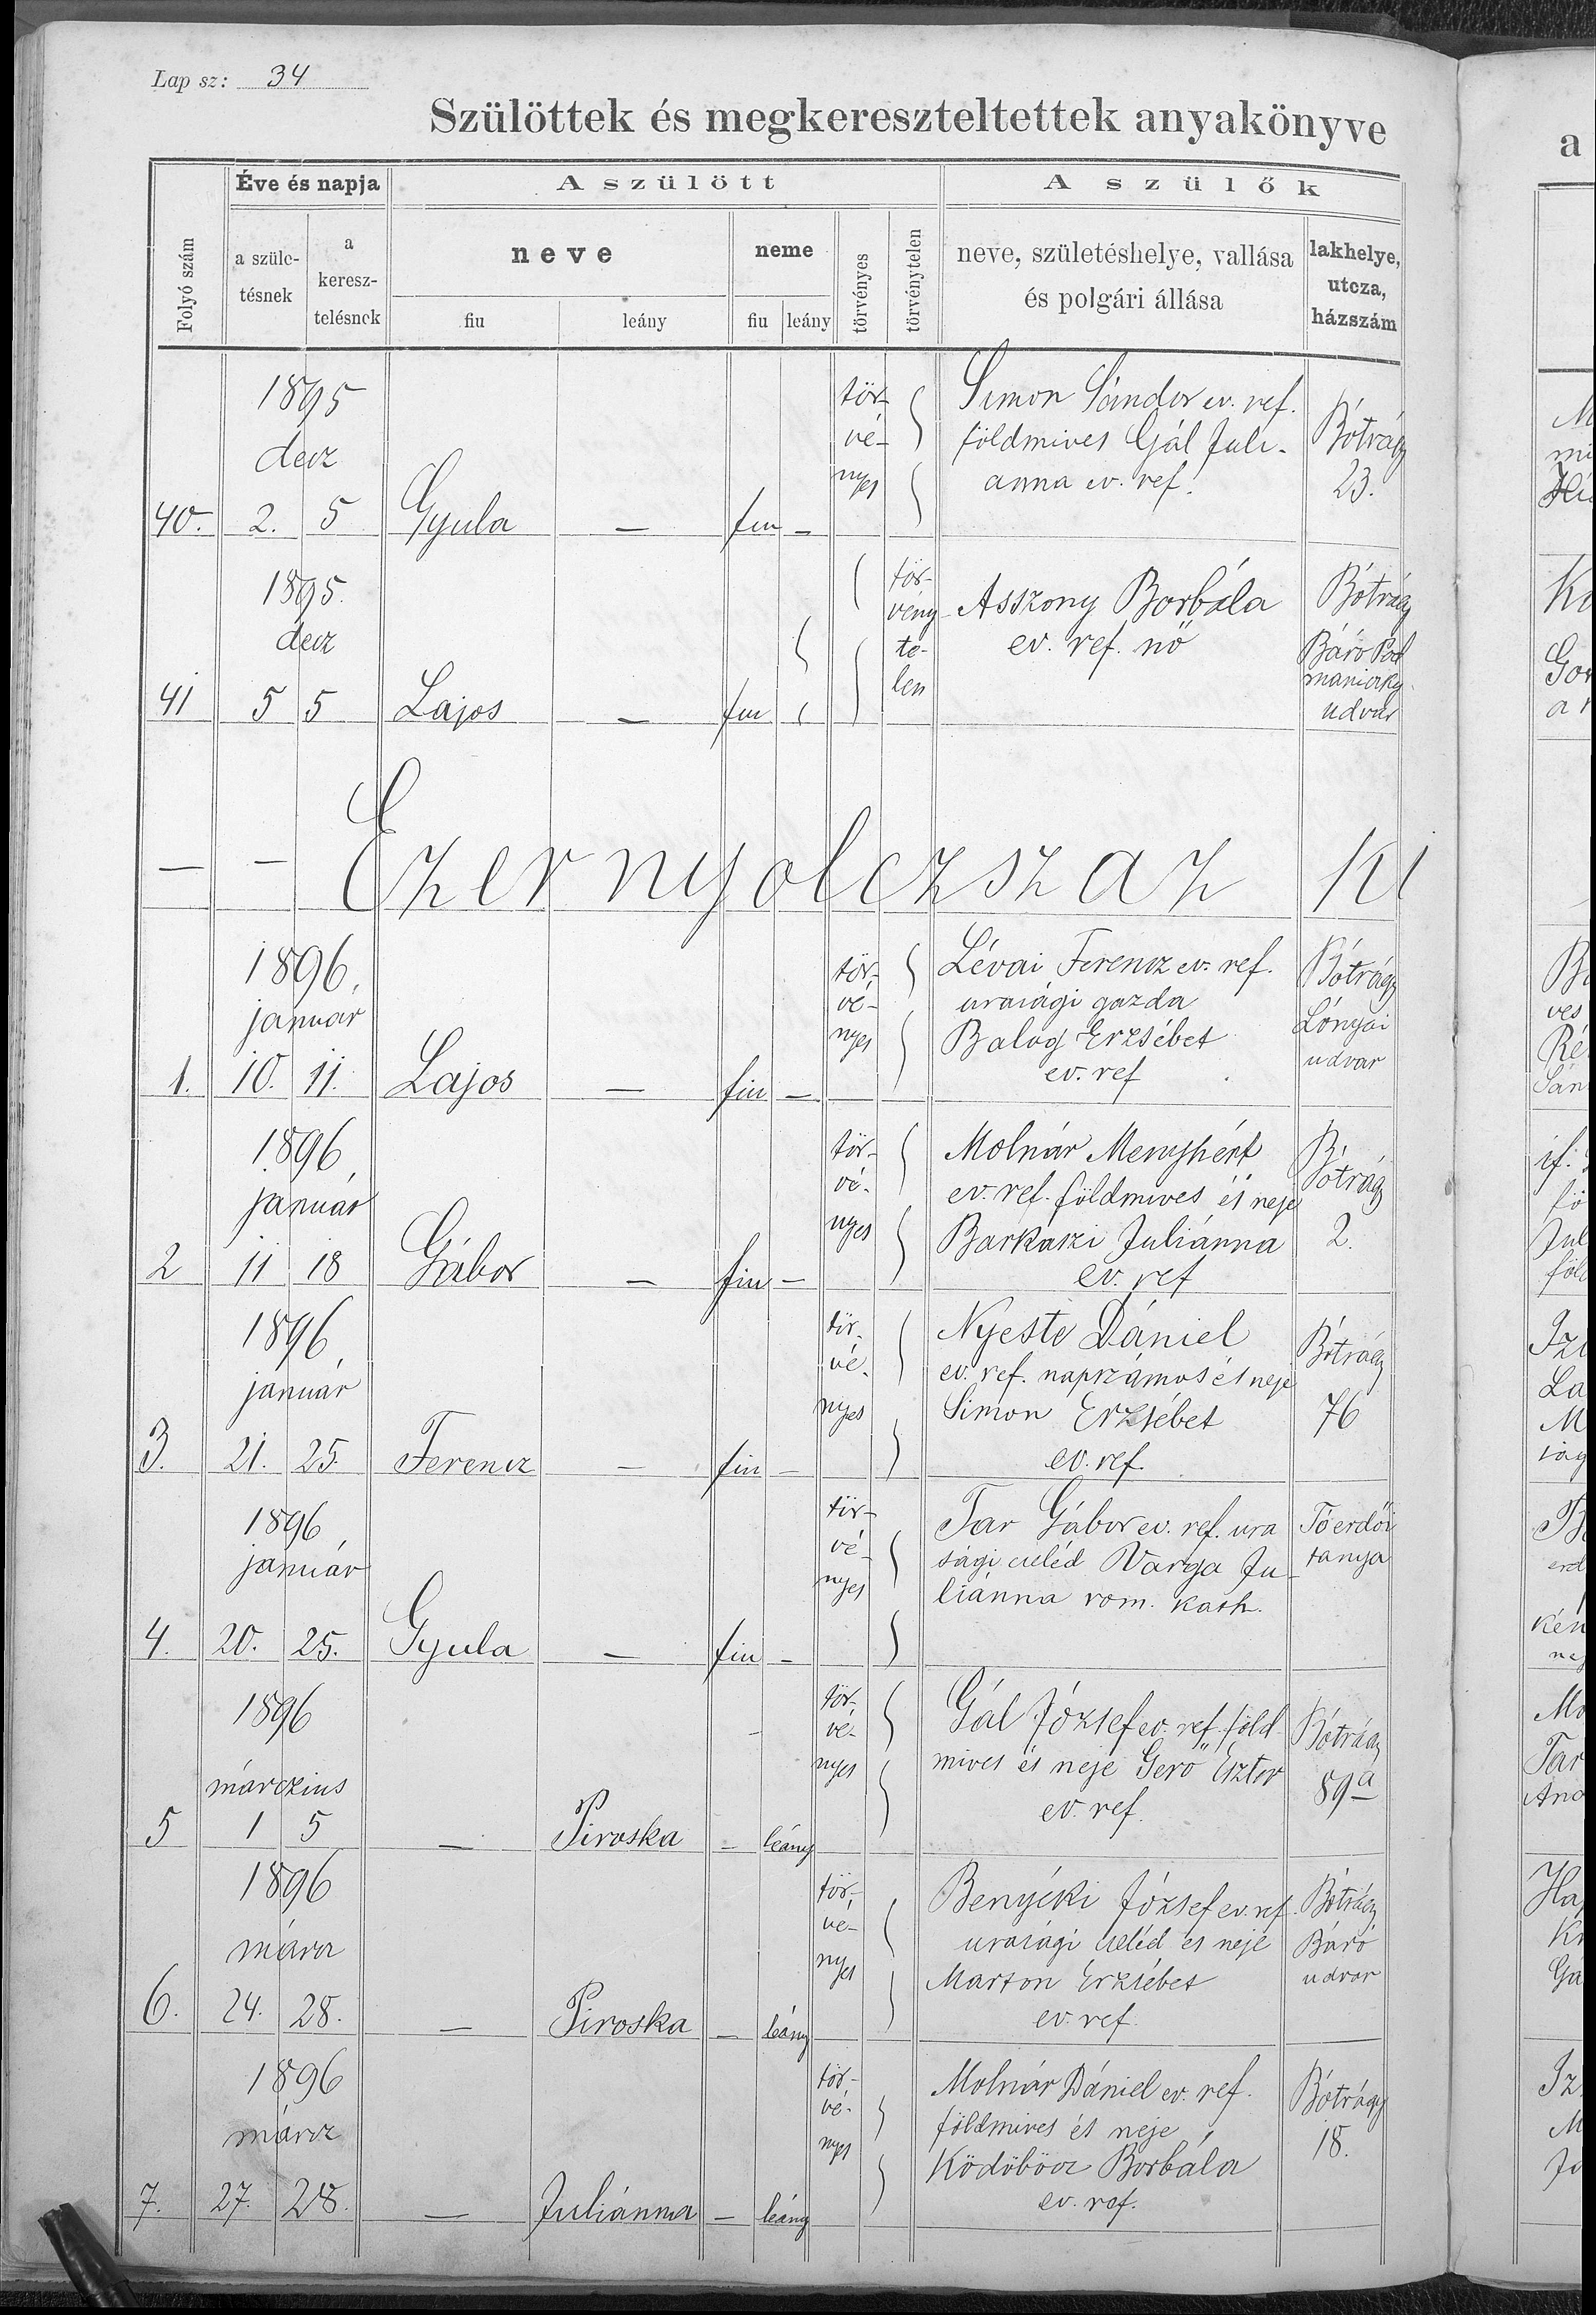 Lap sz: 34
Szülöttek és megkereszteltettek anyakönyve
Folyó szám
Éve és napja
a szüle-
tésnek
a
keresz-
telésnek
A szülött
neve
fiu
leány
neme
fiu
leány
törvényes
törvénytelen
A szülők
neve, születéshelye, vallása
és polgári állása
lakhelye,
utcza,
házszám
40.
1895
decz
2. 5
Gyula
—
fiu —
tör-
vé-
nyes
Simon Sándor ev. ref.
földmives Gál Juli-
anna ev. ref.
Bótrágy
23.
41
1895.
decz
5 5
Lajos
—
fiu
tör-
vény
te-
len
Asszony Borbála
ev. ref. nő
Bótrágy
Báró Pod
maniczky
udvar
— — Ezernyolczszaz ki
1.
1896,
januar
10. 11.
Lajos
—
fiu —
tör-
vé-
nyes
Lévai Ferencz ev. ref.
urasági gazda
Balog Erzsébet
ev. ref
Bótrágy
Lónyai
udvar
2
1896,
január
11 18
Gábor
—
fiu —
tör-
vé-
nyes
Molnár Menyhért
ev. ref. földmives és neje
Barkaszi Juliánna
ev. ref
Bótrágy
2.
3.
1896,
január
21. 25.
Ferencz
—
fiu —
tör-
vé-
nyes
Nyeste Dániel
ev. ref. napszámos és neje
Simon Erzsébet
ev. ref.
Bótrágy
76
4.
1896,
január
20. 25.
Gyula
—
fiu —
tör-
vé-
nyes
Tar Gábor ev. ref. ura
sági cseléd Varga Ju-
liánna rom. kath.
Tóerdői
tanya
5
1896
márczius
1 5
—
Piroska
— leány
tör-
vé-
nyes
Gál József ev. ref. föld-
mives és neje Gerő Eszter
ev. ref.
Bótrágy
89a
6.
1896
márcz
24. 28.
—
Piroska
— leány
tör-
vé-
nyes
Benyéki József ev. ref.
urasági cseléd és neje
Marton Erzsébet
ev. ref.
Bótrágy
Báró
udvar
7.
1896
márcz
27. 28.
—
Juliánna
— leány
tör-
vé-
nyes
Molnár Dániel ev. ref.
földmives és neje
Ködöböcz Borbála
ev. ref.
Bótrágy
18.